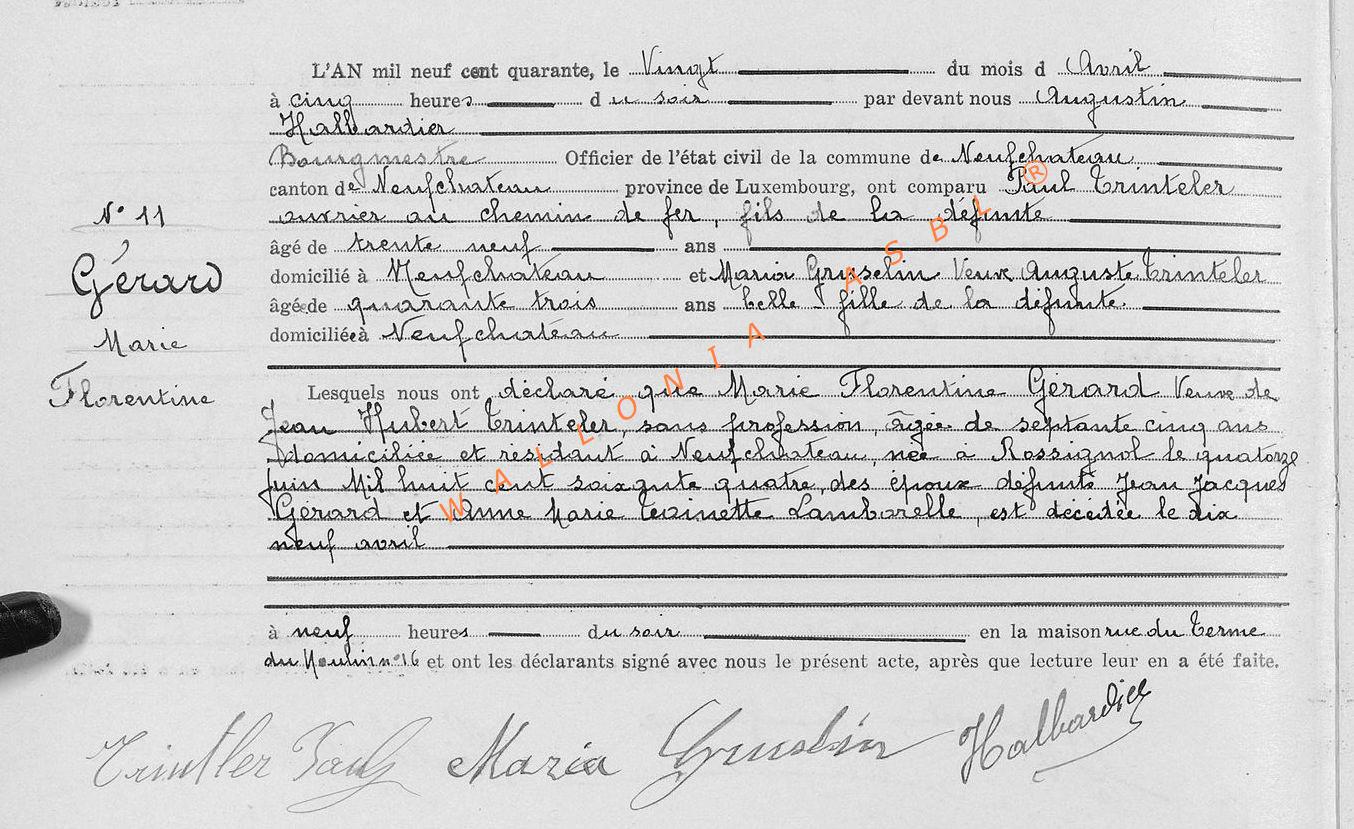 L'AN mil neuf cent quarante, le Vingt du mois d Avril
à cinq heures du soir par devant nous Augustin
Halbardier
Bourgmestre Officier de l'état civil de la commune de Neufchateau
canton de Neufchateau province de Luxembourg, ont comparu Paul Trinteler
N° 11
ouvrier au chemin de fer, fils de la défunte
âgé de trente neuf ans
Gérard
domicilié à Neufchateau et Maria Gruselin Veuve Auguste Trinteler
âgée de quarante trois ans belle fille de la défunte
Marie
domiciliée à Neufchateau
Florentine
Lesquels nous ont déclaré que Marie Florentine Gérard Veuve de
Jean Hubert Trinteler, sans profession, âgée de septante cinq ans
domiciliée et résidant à Neufchateau, née à Rossignol le quatorze
Juin Mil huit cent soixante quatre, des époux défunts Jean Jacques
Gérard et Anne Marie Toinette Lamborelle, est décédée le dix
neuf avril
à neuf heures du soir en la maison rue du Terme
du Moulin n° 16 et ont les déclarants signé avec nous le présent acte, après que lecture leur en a été faite.
Trintler Paul Maria Gruslin Halbardier
WALLONIA ASBL ®